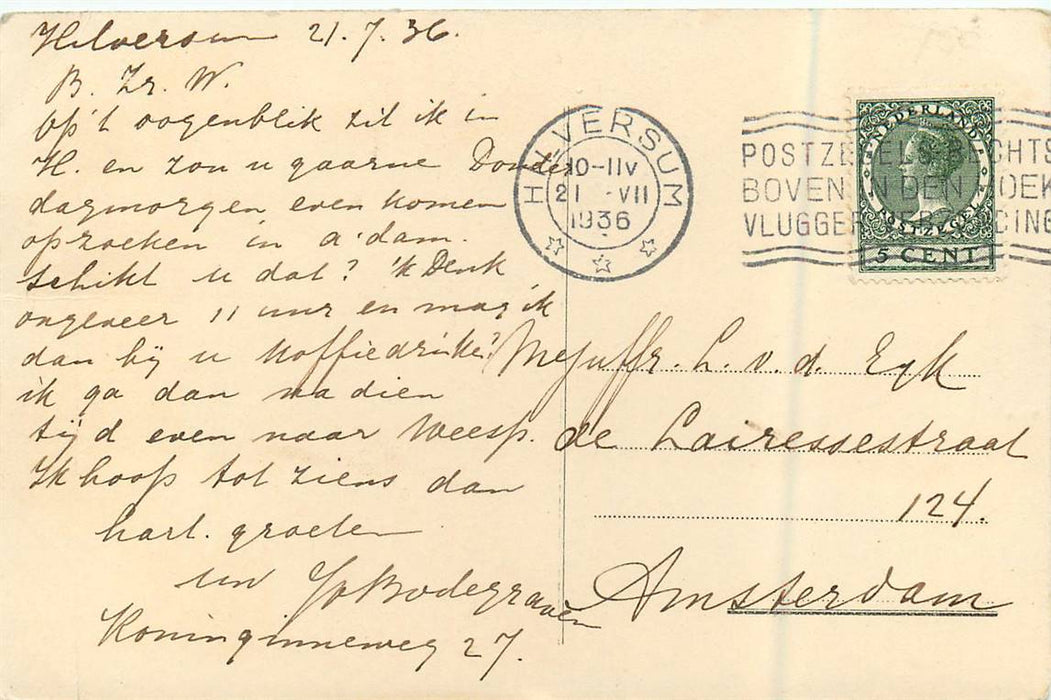 Hilversum 21.7.36.
B. Zr. W.
Op't oogenblik zit ik in
H. en zou u gaarne Donder
dagmorgen even komen
opzoeken in A'dam.
schikt u dat? 'k Denk
ongeveer 11 uur en mag ik
dan bij u koffiedrinken?
ik ga dan nadien
tijd even naar Weesp.
Ik hoop tot ziens dan
hart. groeten
uw Bodegraven
Koninginneweg 27.
HILVERSUM
10-11V
21 VII
1936
POSTZEGELS RECHTS
BOVEN IN DEN HOEK
VLUGGER VERZENDING
NEDERLAND
POSTZEGEL
5 CENT
Mejuffr. L. v. d. Eyk
de Lairessestraat
124.
Amsterdam